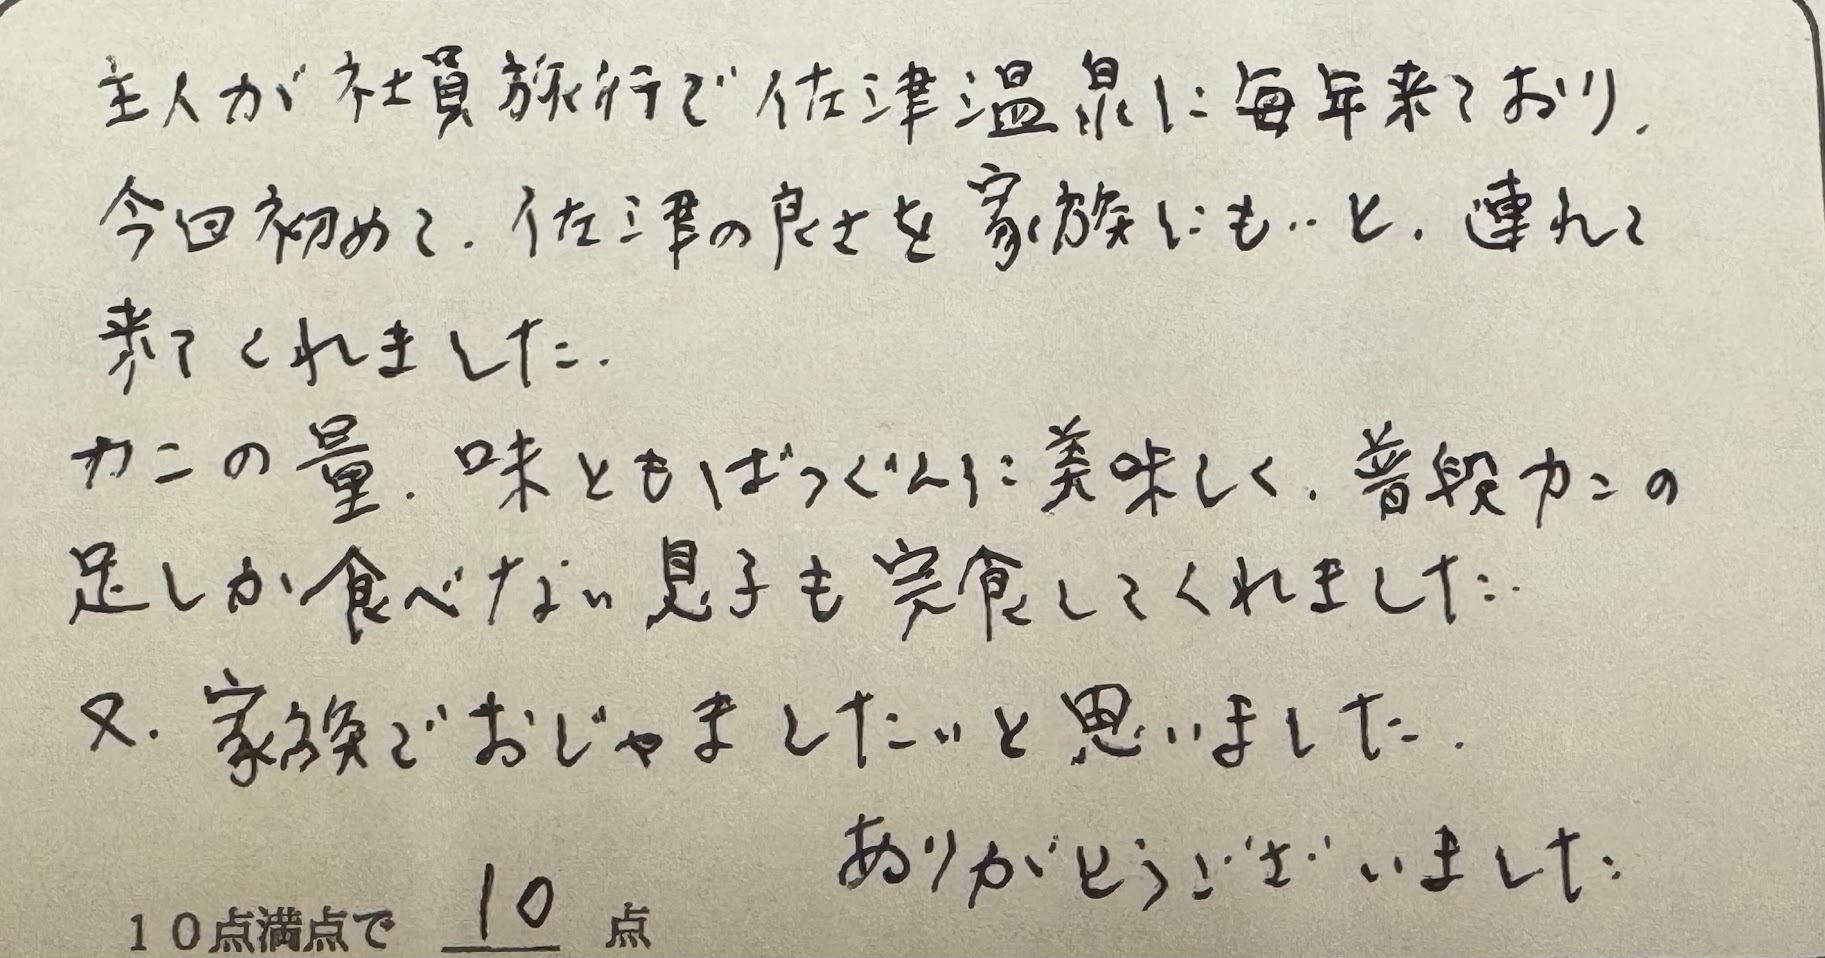 主人が社員旅行で佐津温泉に毎年来ており、
今回初めて、佐津の良さを家族にも‥と、連れて
来てくれました。
カニの量、味ともばつぐんに美味しく、普段カニの
足しか食べない息子も完食してくれました。
又、家族でおじゃましたいと思いました。
ありがとうございました
10点満点で 10 点